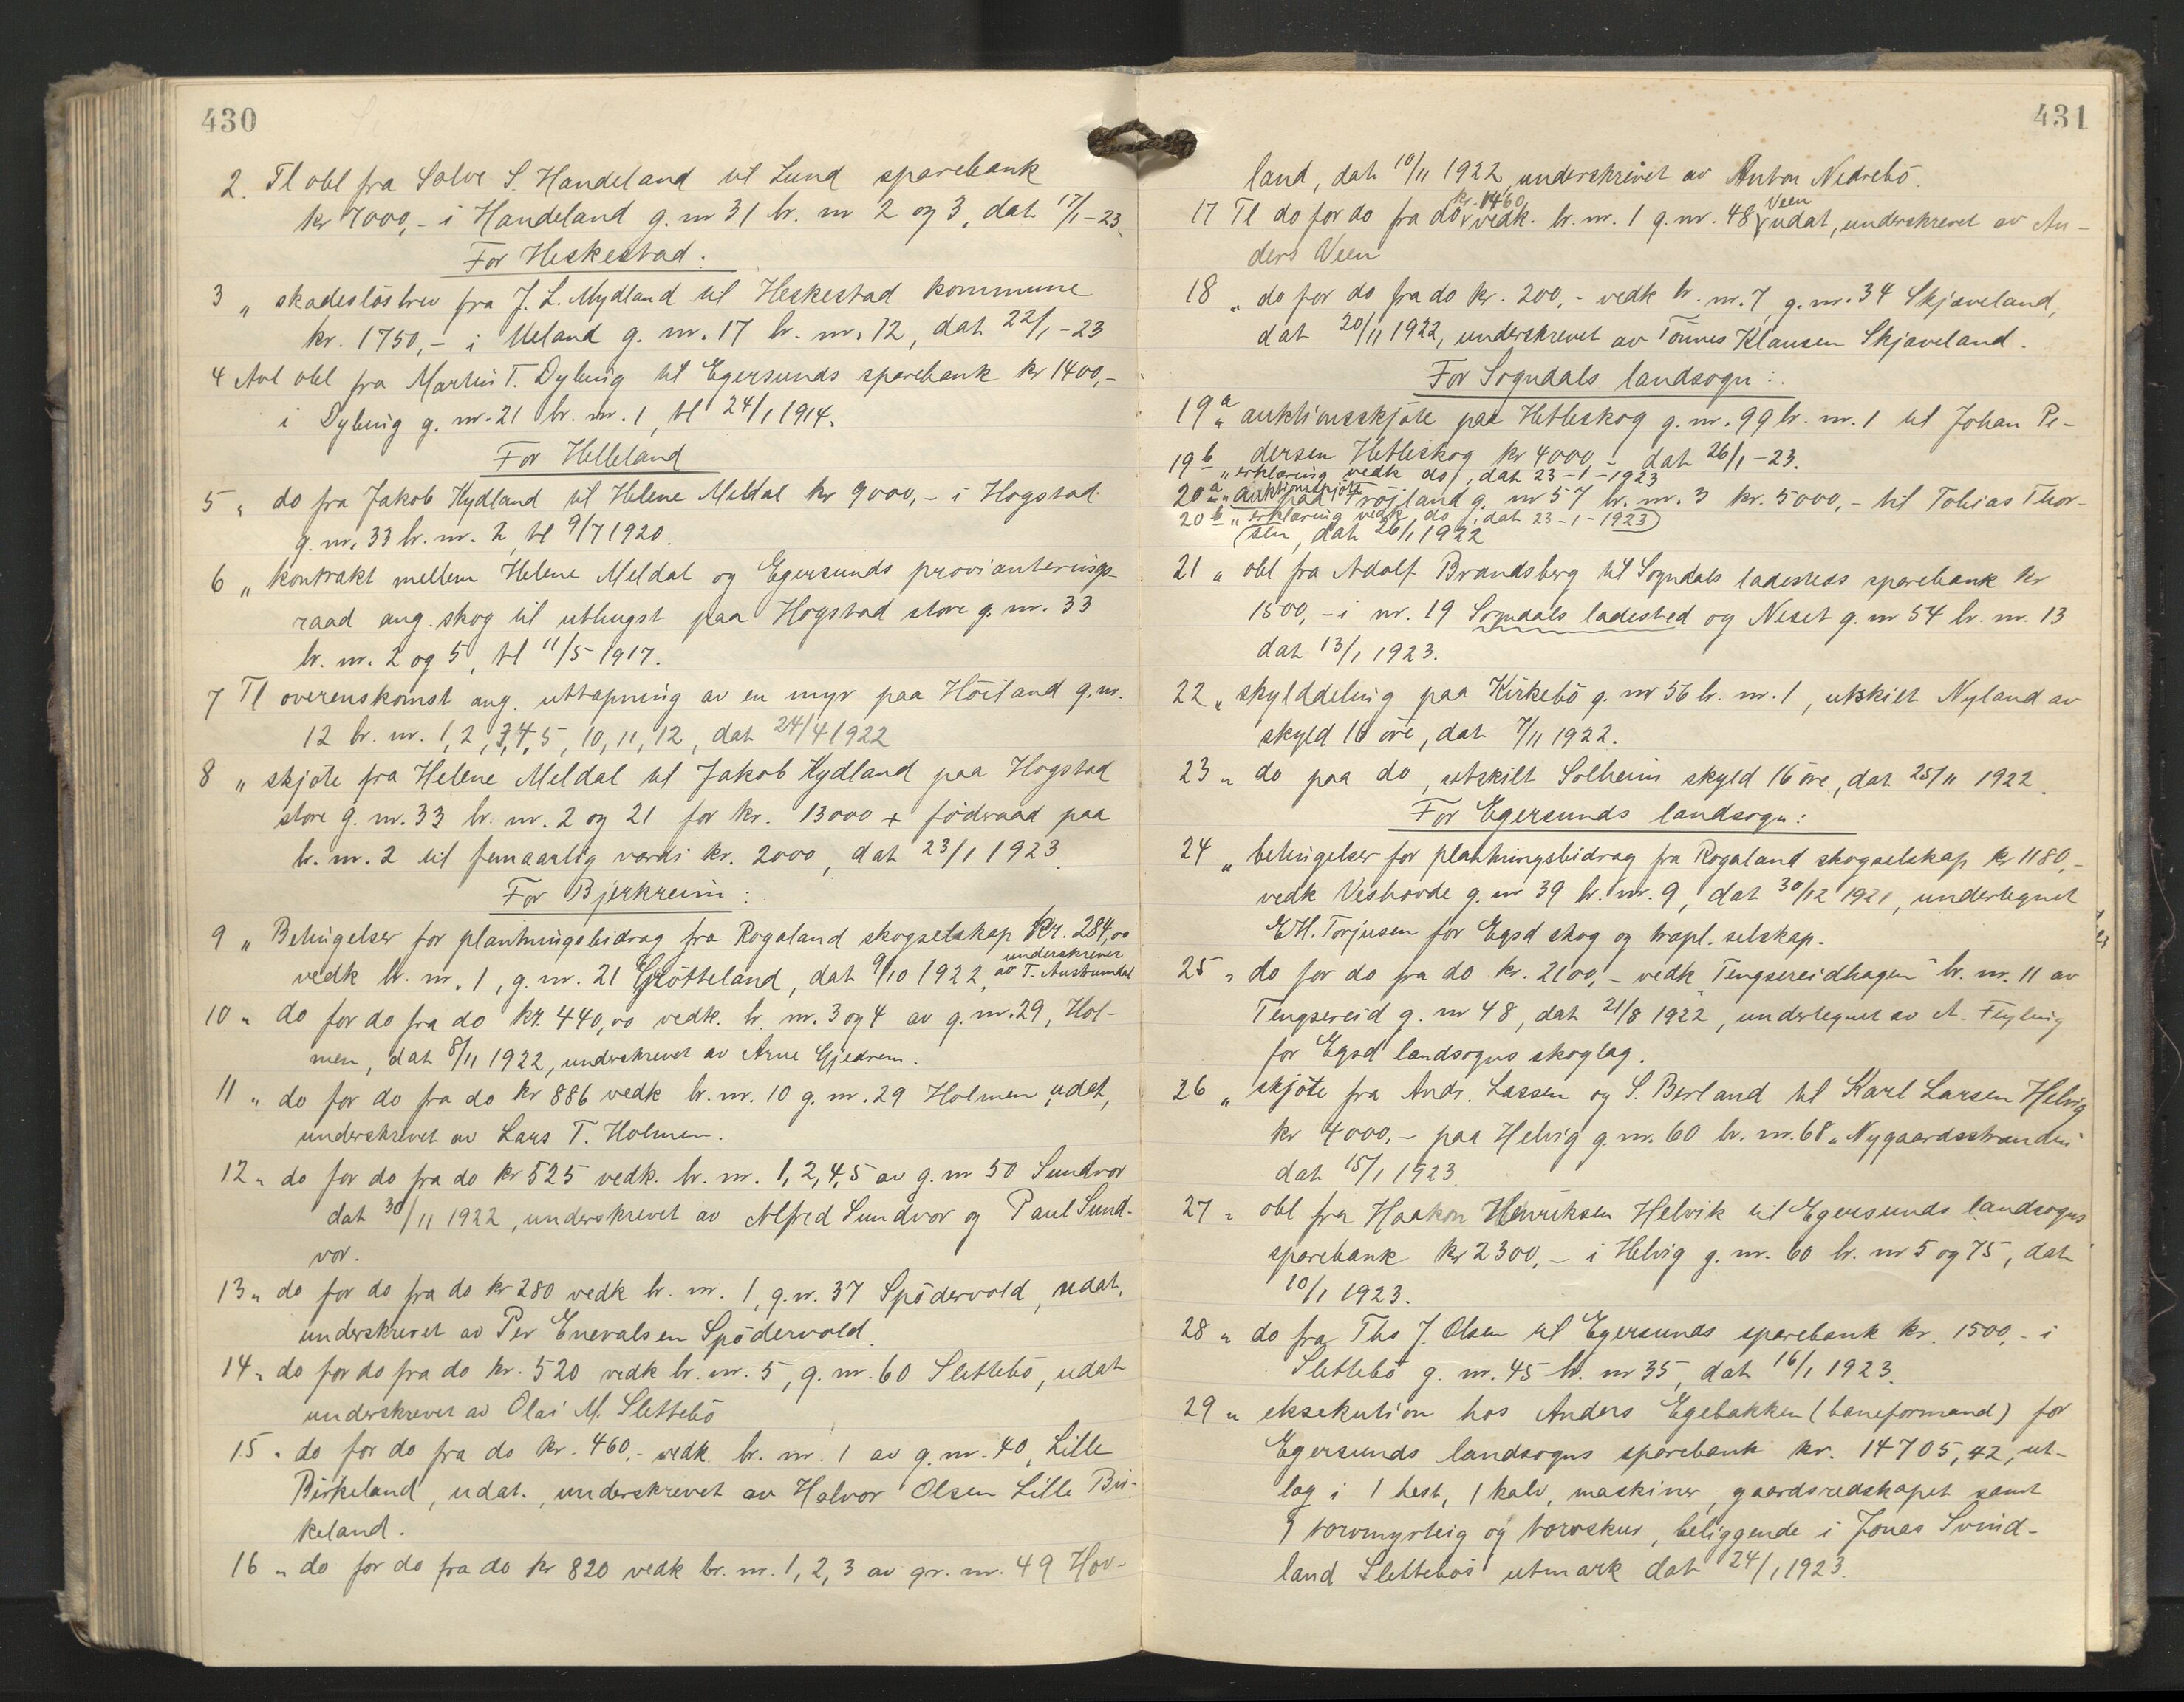 430
2. Tl obl fra Salve S. Handeland til Lund sparebank
kr 7000,- i Handeland g. nr 31 br. nr 2 og 3, dat 17/1-23.
For Heskestad.
3 „ skadeslösbrev fra J. L. Mydland til Heskestad kommune
kr. 1750,- i Ueland g. nr. 17 br. nr. 12, dat 22/1-23
4 Avl obl fra Martin T. Dybing til Egersunds sparebank kr 1400,-
i Dybing g. nr. 21 br. nr. 1, tl 24/1 1914.
For Helleland
5 „ do fra Jakob Hydland til Helene Meldal kr 9000,- i Hogstad
g. nr. 33 br. nr. 2, tl 9/7 1920.
6 „ kontrakt mellem Helene Meldal og Egersunds provianterings-
raad ang. skog til uthugst paa Hogstad store g. nr. 33
br. nr. 2 og 5, tl 11/5 1917.
7 Tl overenskomst ang. uttapning av en myr paa Höiland g. nr.
12 br. nr. 1, 2, 3, 4, 5, 10, 11, 12, dat 24/4 1922
8 „ skjöte fra Helene Meldal til Jakob Hydland paa Hogstad
store g. nr. 33 br. nr. 2 og 21 for kr. 13000 + födraad paa
br. nr. 2 til femaarlig værdi kr. 2000, dat 23/1 1923.
For Bjerkreim:
9 „ Betingelser for plantningsbidrag fra Rogaland skogselskap kr. 284,00
vedk br. nr. 1, g. nr. 21 Grötteland, dat 9/10 1922, underskrevet av T. Austrumdal
10 „ do for do fra do kr. 440,00 vedk. br. nr. 3 og 4 av g. nr. 29, Hol-
men, dat 8/11 1922, underskrevet av Arne Gjedrem.
11 „ do for do fra do kr 886 vedk br. nr. 10 g. nr. 29 Holmen udat,
underskrevet av Lars T. Holmen.
12 „ do for do fra do kr 525 vedk. br. nr. 1, 2, 4, 5 av g. nr 50 Sundvor
dat 30/11 1922, underskrevet av Alfred Sundvor og Paul Sund-
vor.
13 „ do for do fra do kr 280 vedk br. nr. 1, g. nr. 37 Spödervold, udat,
underskrevet av Per Enevalsen Spödervold.
14 „ do for do fra do kr. 520 vedk br. nr. 5, g. nr. 60 Slettebö, udat
underskrevet av Olai M. Slettebö
15 „ do for do fra do kr. 460,- vedk. br. nr. 1 av g. nr. 40, Lille
Birkeland, udat., underskrevet av Halvor Olsen Lille Bir-
keland.
16 „ do for do fra do kr 820 vedk br. nr. 1, 2, 3 av gr. nr. 49 Hov-
431
land, dat 10/11 1922, underskrevet av Anton Nedrebö.
17 Tl do for do fra do kr. 1460 vedk. br. nr. 1 g. nr. 48 Veen udat, underskrevet av An-
ders Veen
18 „ do for do fra do kr. 200,- vedk br. nr. 7, g. nr. 34 Skjæveland,
dat 20/11 1922, underskrevet av Tönnes Klausen Skjæveland.
For Sogndals landsogn:
19 a „ auktionsskjöte paa Hetleskog g. nr. 99 br. nr. 1 til Johan Pe-
dersen Hetleskog kr 4000,- dat 26/1-23.
19 b „ erklæring vedk do, dat 23-1-1923
20 a „ auktionsskjöte paa Fröjland g. nr 57 br. nr. 3 kr. 5000,- til Tobias Thor-
20 b „ erklæring vedk. do, dat 23-1-1923
sen, dat 26/1 1922
21 „ obl fra Adolf Brandsberg til Sogndals ladesteds sparebank kr
1500,- i nr. 19 Sogndals ladested og Neset g. nr 54 br. nr. 13
dat 13/1 1923.
22 „ skylddeling paa Kirkebö g. nr 56 br. nr. 1, utskilt Nyland av
skyld 16 öre, dat 7/11 1922.
23 „ do paa do, utskilt Solheim skyld 16 öre, dat 25/11 1922.
For Egersunds landsogn:
24 „ betingelser for plantningsbidrag fra Rogaland skogselskap kr 1180,-
vedk Veshovde g. nr 39 br. nr. 9, dat 30/12 1921, undertegnet
E. H. Torjusen for Egsd skog og trapl. selskap.
25 „ do for do fra do kr. 2100,- vedk „Tengsereidhagen" br. nr. 11 av
Tengsereid g. nr 48, dat 21/8 1922, undertegnet av A.
for Egsd landsogns skoglag.
26 „ skjöte fra Andr. Lassen og S. Berland til Karl Larsen Helvig
kr 4000,- paa Helvig g. nr. 60 br. nr. 68 „Nygaardsstranden"
dat 15/1 1923.
27 „ obl fra Haakon Henriksen Helvik til Egersunds landsogns
sparebank kr 2300,- i Helvig g. nr. 60 br. nr 5 og 75, dat
10/1 1923.
28 „ do fra Ths J. Olsen til Egersunds sparebank kr. 1500,- i
Slettebö g. nr. 45 br. nr 35, dat 16/1 1923.
29 „ eksekution hos Anders Egebakken (baneformand) for
Egersunds landsogns sparebank kr. 14705,42, ut-
lag i 1 hest, 1 kalv, maskiner, gaardsredskapet samt
1 torvmyrteig og torvskur, beliggende i Jonas Svind-
land Slettebös utmark dat 24/1 1923.